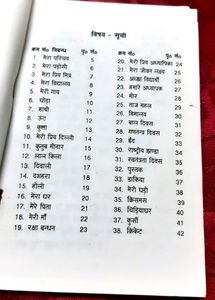 विषय - सूची
क्रम सं० निबन्ध पृ० सं०
1. मेरा परिचय 5
2. मेरा पड़ोसी 6
3. मेरा प्रिय मित्र 7
4. मेरा विद्यालय 8
5. मेरी गाय 9
6. घोड़ा 10
7. हाथी 11
8. ऊंट 12
9. कुत्ता 13
10. मेरी प्रिय दिल्ली 14
11. कुतुब मीनार 15
12. लाल किला 16
13. दिवाली 17
14. दशहरा 18
15. होली 19
16. मेरा घर 20
17. मेरे पिता 21
18. मेरी माँ 22
19. रक्षा बन्धन 23
क्रम सं० निबन्ध पृ० सं०
20. मेरी प्रिय अध्यापिका 24
21. मेरा जीवन लक्ष्य 25
22. अच्छा विद्यार्थी 26
23. हमारे अध्यापक 27
24. मोर 28
25. ताज महल 29
26. हिमालय 30
27. बाल दिवस 31
28. गणतन्त्र दिवस 32
29. ईद 33
30. राष्ट्रीय झण्डा 34
31. स्वतंत्रता दिवस 35
32. पुस्तक 36
33. डाकिया 37
34. मेरी घड़ी 38
35. क्रिसमस 39
36. चिड़ियाघर 40
37. कुर्सी 41
38. क्रिकेट 42